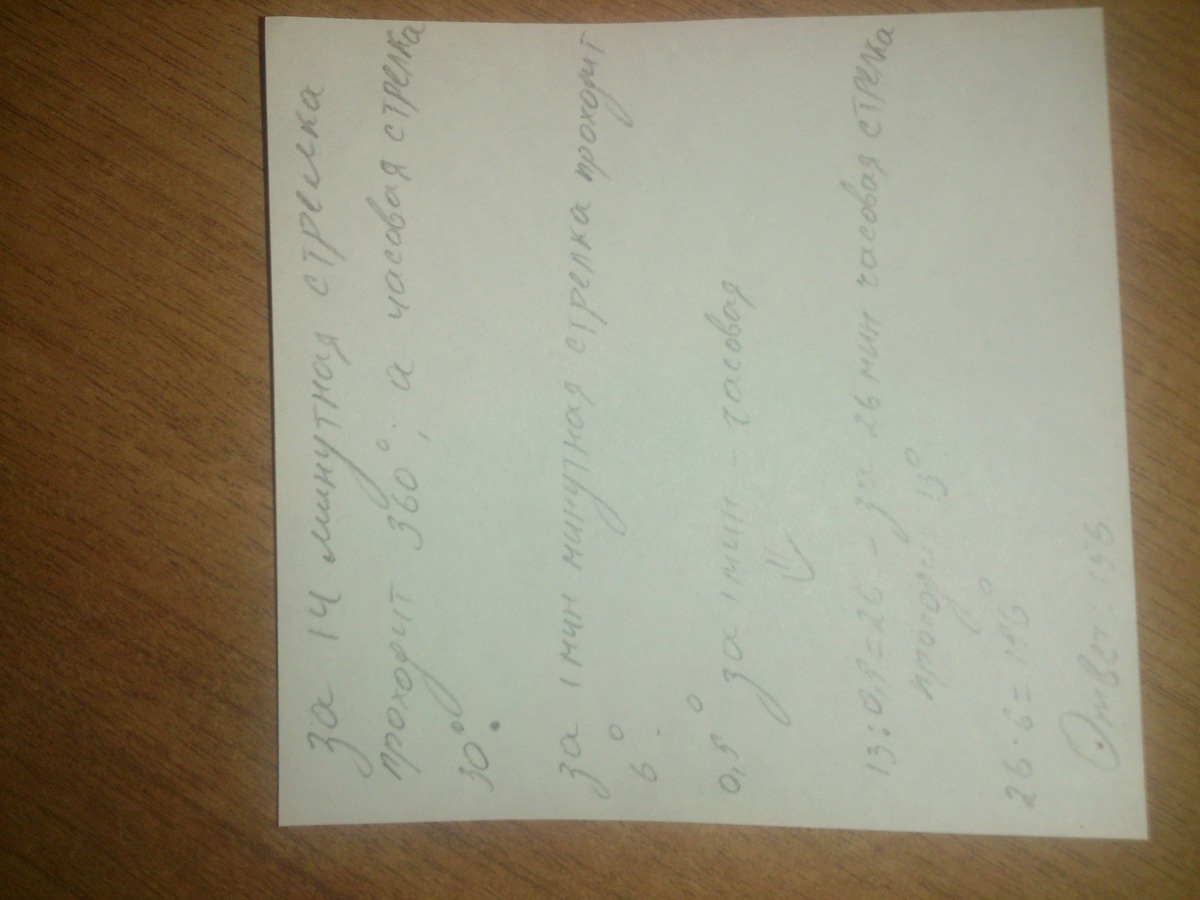 за 1 ч минутная стрелка
проходит 360°, а часовая стрелка
30°.
за 1 мин минутная стрелка проходит
6°.
0,5° за 1 мин - часовая
⇓
13:0,5=26 - за 26 мин часовая стрелка
проходит 13°
26·6=156°
Ответ: 156.